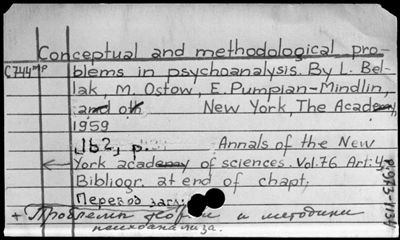 Conceptual and methodological pro-
C744mp blems in psychoanalysis. By L. Bel-
lak, M. Ostow, E. Pumpian-Mindlin,
and oth New York, The Academy,
1959
162, p. Annals of the New
York academy of sciences. Vol.76. Art:4,
Bibliogr. at end of chapt;
Перевод загл.:
+ Проблемы теории и методики
психоанализа.